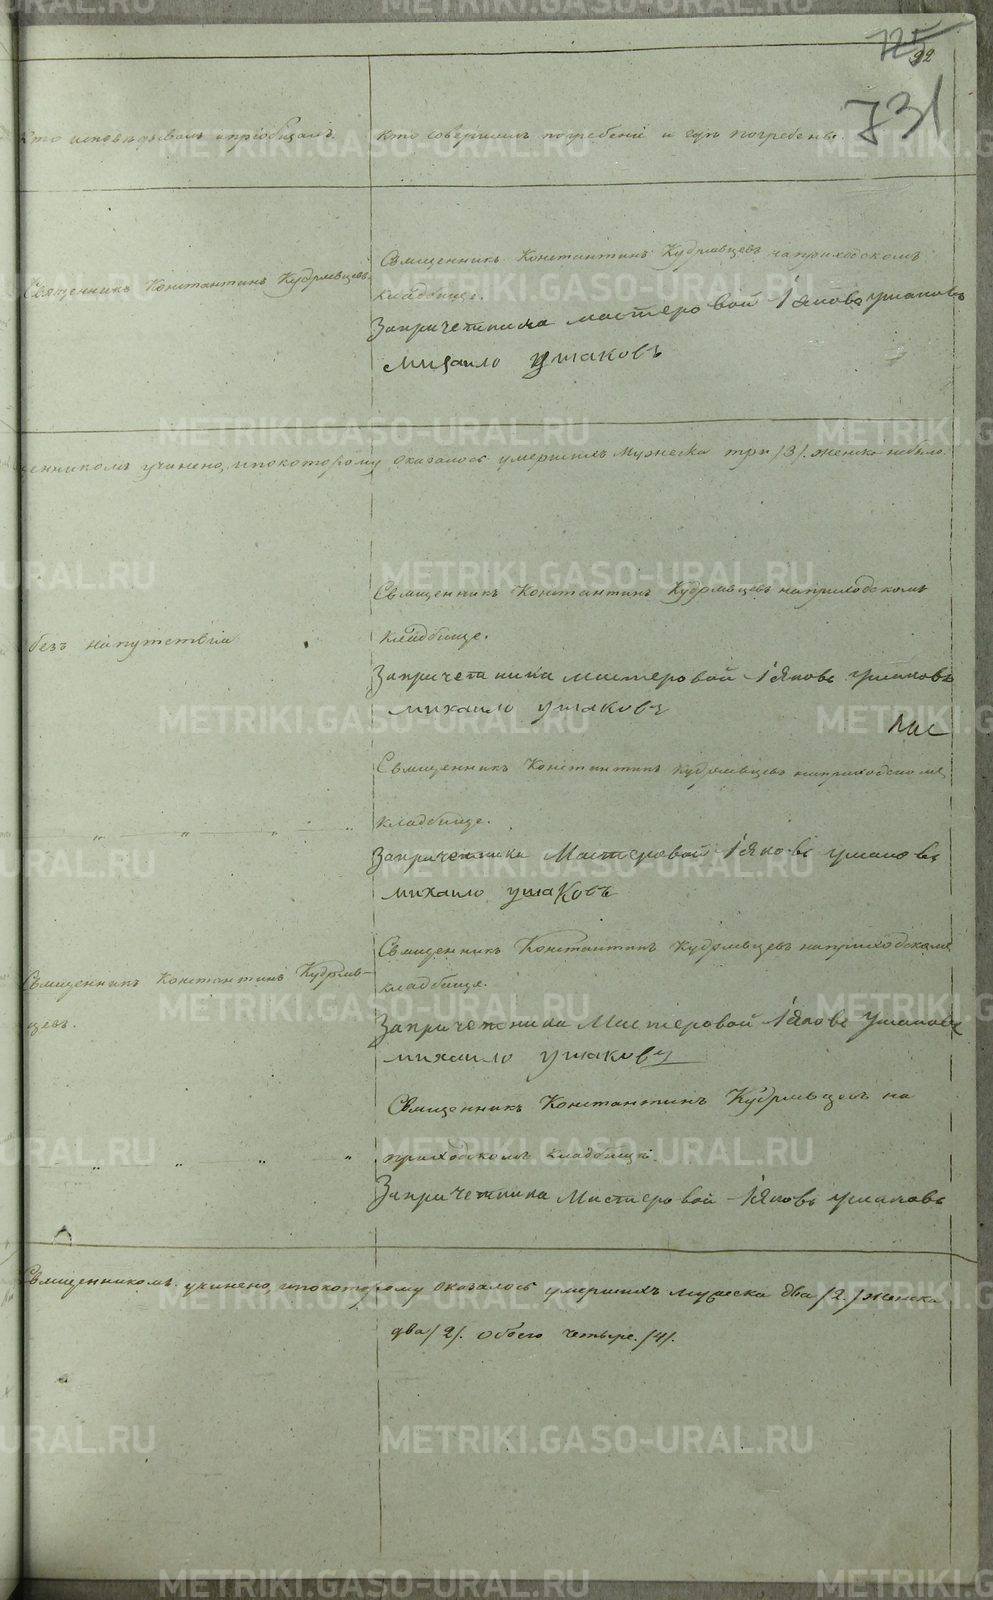 125
92
731
Кто исповѣдывалъ и пріобщалъ.
Кто совершилъ погребеніе и гдѣ погребены.
Священникъ Константинъ Кудрявцевъ.
Священникъ Константинъ Кудрявцевъ на приходскомъ
кладбище.
За причетника мастеровой Іяковъ Ушаковъ
Михаило Ушаковъ
щенникомъ учинено, и по которому оказалось умершихъ мужеска три /3/. женска небыло.
безъ напутствія
Священникъ Константинъ Кудрявцевъ на приходскомъ
кладбище.
За причетника Мастеровой Іяковъ Ушаковъ
Михаило Ушаковъ
Священникъ Константинъ Кудрявцевъ на приходскомъ
кладбище.
За причетника Мастеровой Іяковъ Ушаковъ
Михаило Ушаковъ
Священникъ Константинъ Кудряв-
цевъ.
Священникъ Константинъ Кудрявцевъ на приходскомъ
кладбище.
За причетника Мастеровой Іяковъ Ушаковъ
Михаило Ушаковъ
Священникъ Константинъ Кудрявцевъ на
приходскомъ кладбище.
За причетника Мастеровой Іяковъ Ушаковъ
Священникомъ учинено, и по которому оказалось умершихъ мужеска два /2./ женска
два /2/. обоего четыре. /4/.
METRIKI.GASO-URAL.RU